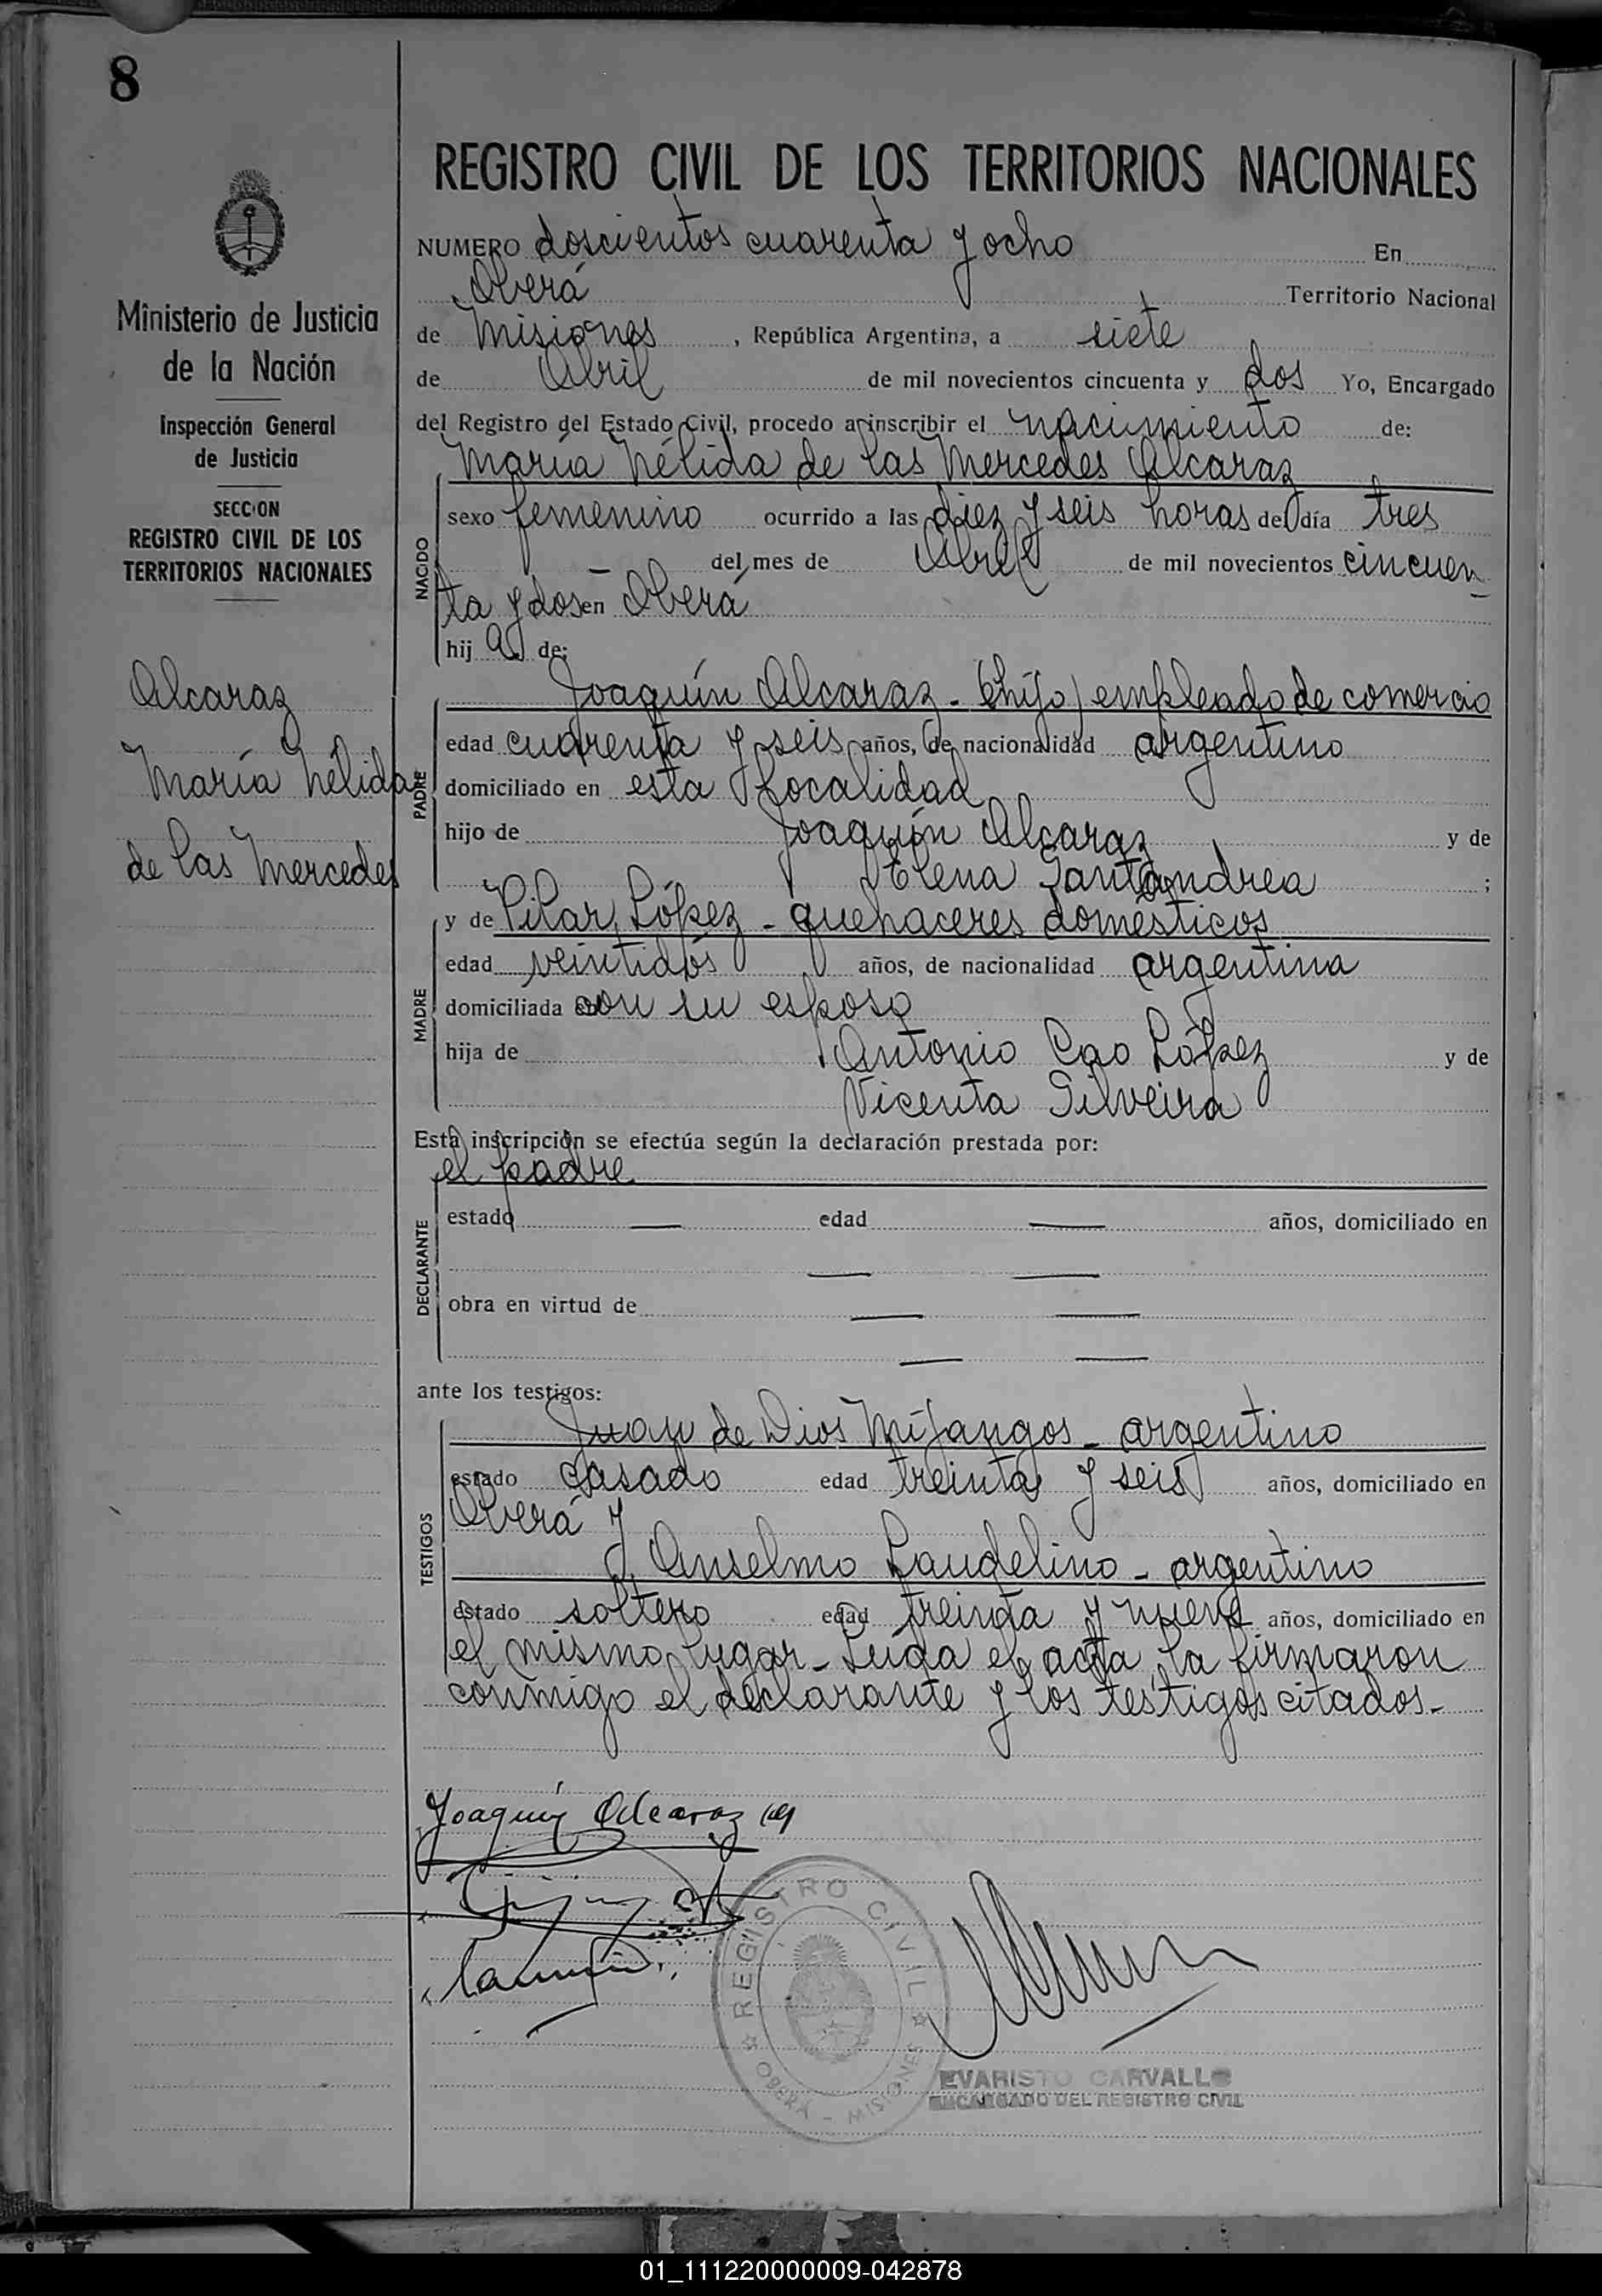 8
REGISTRO CIVIL DE LOS TERRITORIOS NACIONALES
NUMERO doscientos cuarenta y ocho En
Oberá Territorio Nacional
de Misiones, República Argentina, a siete
de Abril de mil novecientos cincuenta y dos Yo, Encargado
del Registro del Estado Civil, procedo a inscribir el nacimiento de:
María Nélida de las Mercedes Alcaraz
sexo femenino ocurrido a las diez y seis horas del día tres
— del mes de Abril de mil novecientos cincuen
ta y dos en Oberá
hija de:
NACIDO
Joaquín Alcaraz - (hijo) empleado de comercio
edad cuarenta y seis años, de nacionalidad argentino
domiciliado en esta localidad
hijo de Joaquín Alcaraz y de
Elena Santandrea ;
PADRE
y de Pilar López - quehaceres domésticos
edad veintidós años, de nacionalidad argentina
domiciliada con su esposo
hija de Antonio Cao López y de
Vicenta Silveira
MADRE
Esta inscripción se efectúa según la declaración prestada por:
el padre
estado — edad — años, domiciliado en
— —
obra en virtud de — —
— —
DECLARANTE
ante los testigos:
Juan de Dios Mijangos - argentino
estado casado edad treinta y seis años, domiciliado en
Oberá y
Anselmo Laudelino - argentino
estado soltero edad treinta y nueve años, domiciliado en
el mismo lugar - Leída el acta, la firmaron
conmigo el declarante y los testigos citados.-
TESTIGOS
Joaquín Alcaraz (h)
REGISTRO CIVIL
OBERÁ - MISIONES
EVARISTO CARVALLO
ENCARGADO DEL REGISTRO CIVIL
Ministerio de Justicia
de la Nación
Inspección General
de Justicia
SECCION
REGISTRO CIVIL DE LOS
TERRITORIOS NACIONALES
Alcaraz
María Nélida
de las Mercedes
01_111220000009-042878